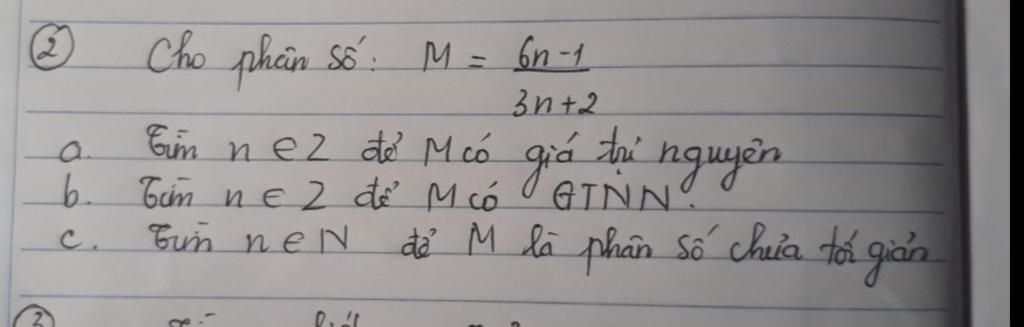 ② Cho phân số: M = 6n-1
3n+2
a. Tìm n ∈ Z để M có giá trị nguyên
b. Tìm n ∈ Z để M có GTNN.
c. Tìm n ∈ N để M là phân số chưa tối giản
③